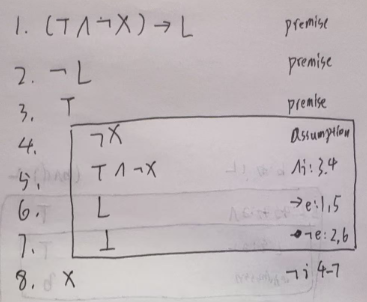 1. (T ∧ ¬X) → L premise
2. ¬L premise
3. T premise
4. ¬X assumption
5. T ∧ ¬X ∧i: 3,4
6. L →e: 1,5
7. ⊥ ¬e: 2,6
8. X ¬i 4-7